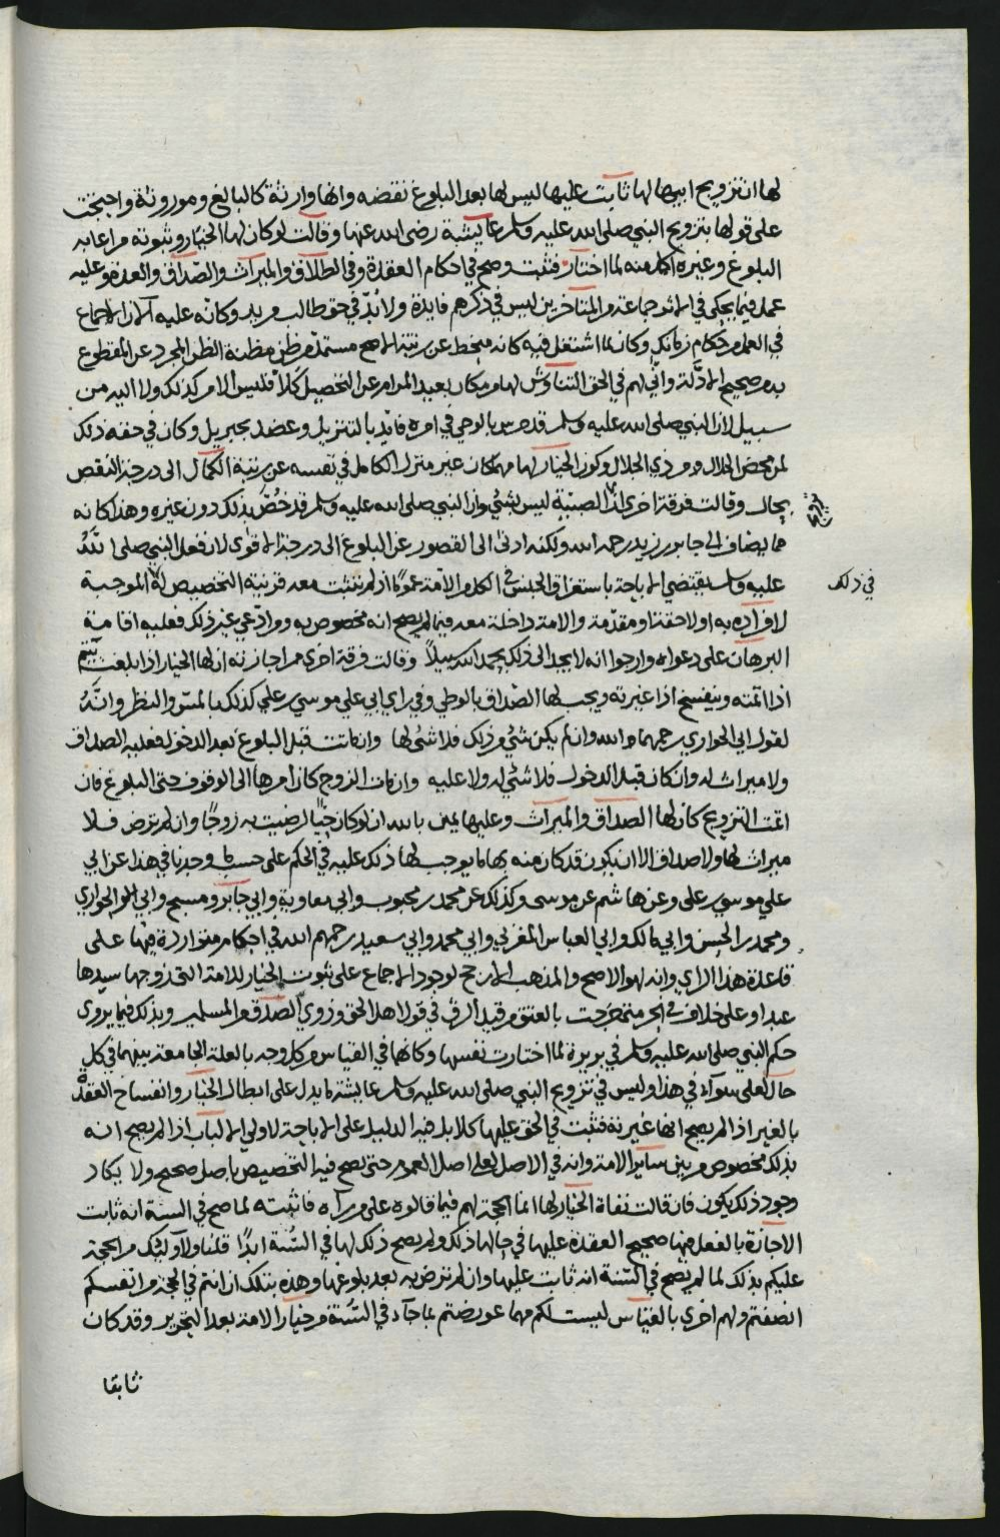 لها ان تزويج ابيها لها ثابت عليها ليس لها بعد البلوغ نقضه وانها وارثة كالبالغ وموروثة واحتجت
على قولها بتزويج النبي صلى الله عليه وسلم عايشة رضي الله عنها وقالت لو كان لها الخيار وثبوته مراعا به
البلوغ وغيره لما اختار فثبت وصح في احكام العقدة وفي الطلاق والميراث والصداق والعدة وعليه
عمل فيما يحكى في الاثر جماعة من المتاخرين ليس في ذكرهم فايدة ولا بد في حق طالب مريد وكانه عليه الان الاجماع
في العمل من حكام زمانك وكان ما اشتغل فيه كانه منحط عن رتبة الاصح مستمد من ظن مظنة الظن المجرد عن المقطوع
به من صحيح الادلة واني لهم في الحق التناوش لها من مكان بعيد المرام عن التحصيل كلا فليس الامر كذلك ولا اليه من
سبيل لان النبي صلى الله عليه وسلم قد حرس بالوحي في امره فايد بالتنزيل وعضد بجبريل وكان في حقه ذلك
لمن محض الحلال ومن ذي الجلال وكون الخيار لها مهما كان غير منزل الكامل في نفسه عن رتبة الكمال الى درجة النقص
بحال وقالت فرقة اخرى ان الصبية ليس بشئ وان النبي صلى الله عليه وسلم قد خُصّ بذلك دون غيره وهذا كانه
مما يضاف الى جابر بن زيد رحمه الله ولكنه ادنى الى القصور عن البلوغ الى درجة الاقوى لان فعل النبي صلى الله
عليه وسلم يقتضي الاباحة باستغراق الجنس في الكل من الامة عمومًا اذ لم تثبت معه قرينة التخصيص له الموجبة
في ذلك
لافراده به او لاحقنا ومقدمة والامة داخلة معه فيما لم يصح انه مخصوص به ومن ادعى غير ذلك فعليه اقامة
البرهان على دعواه وارجوا انه لا يجد الى ذلك بحمد الله سبيلاً وقالت فرقة اخرى ممن اجازته ان لها الخيار اذا بلغت يتم
اذا اتمته وينفسخ اذا غيرته ويجب لها الصداق بالوطي وفي راي ابي علي موسى بن علي كذلك بالمس والنظر وانه
لقول ابي الحواري رحمهما الله وان لم يكن شئ من ذلك فلا شئ لها وان ماتت قبل البلوغ بعد الدخول فعليه الصداق
ولا ميراث له وان كان قبل الدخول فلا شئ له ولا عليه وان مات الزوج كان امرها الى الوقوف حتى البلوغ فان
اتمت التزويج كان لها الصداق والميراث وعليها يمين بالله ان لو كان حيًا لرضيت به زوجًا وان لم ترض فلا
ميراث لها ولا صداق الا ان يكون قد كان منه بها ما يوجب لها ذلك عليه في الحكم على حسب ما وجدنا في هذا عن ابي
علي موسى بن علي وعن هاشم عن موسى وكذلك عن محمد بن محبوب وابي معاوية وابي جابر ومسبح وابي المؤثر وابي الحواري
ومحمد بن الحسن وابي مالك وابي العباس المغربي وابي محمد وابي سعيد رحمهم الله في احكام متواردة فيها على
قاعدة هذا الراي وانه لهو الاصح والمذهب الارجح لوجود الاجماع على ثبوت الخيار للامة التي زوجها سيدها
عبدا وعلى خلاف في الحر متى خرجت بالعتق من قيد الرق في قول اهل الحق وذوي الصدق من المسلمين وبذلك فيما يروى
حكم النبي صلى الله عليه وسلم في بريرة لما اختارت نفسها وكانهما في القياس من كل وجه بالعلة الجامعة بينهما في كل
حال لعلى سوآء في هذا وليس في تزويج النبي صلى الله عليه وسلم عايشة ما يدل على ابطال الخيار وانفساخ العقدة
بالغير اذ لم يصح انها غيرته فثبت في الحق عليها كلا بل فيه الدليل على الاباحة لاولي الالباب اذ لم يصح انه
بذلك مخصوص من بين ساير الامة وانه في الاصل لعلى اصل العموم حتى يصح فيه التخصيص باصل صحيح ولا يكاد
وجود ذلك يكون فان قالت نفاة الخيار لها انما الحجة لهم فيما قالوه على من رآه فاثبته لما صح في السنة انه ثابت
الاجازة بالفعل منها صحيح العقدة عليها في حالها ذلك ولم يصح ذلك لها في السُّنة ابدًا قلنا ولا اولئك من الحجة
عليكم بذلك لما لم يصح في السّنة انه ثابت عليها وان لم ترض به بعد بلوغها وهذه بتلك ان انتم في الحجة من انفسكم
انصفتم ولهم اخرى بالقياس ليست لكم مهما عورضتم بما جآء في السُّنة من خيار الامة بعد التحرير وقد كان
ثابقا